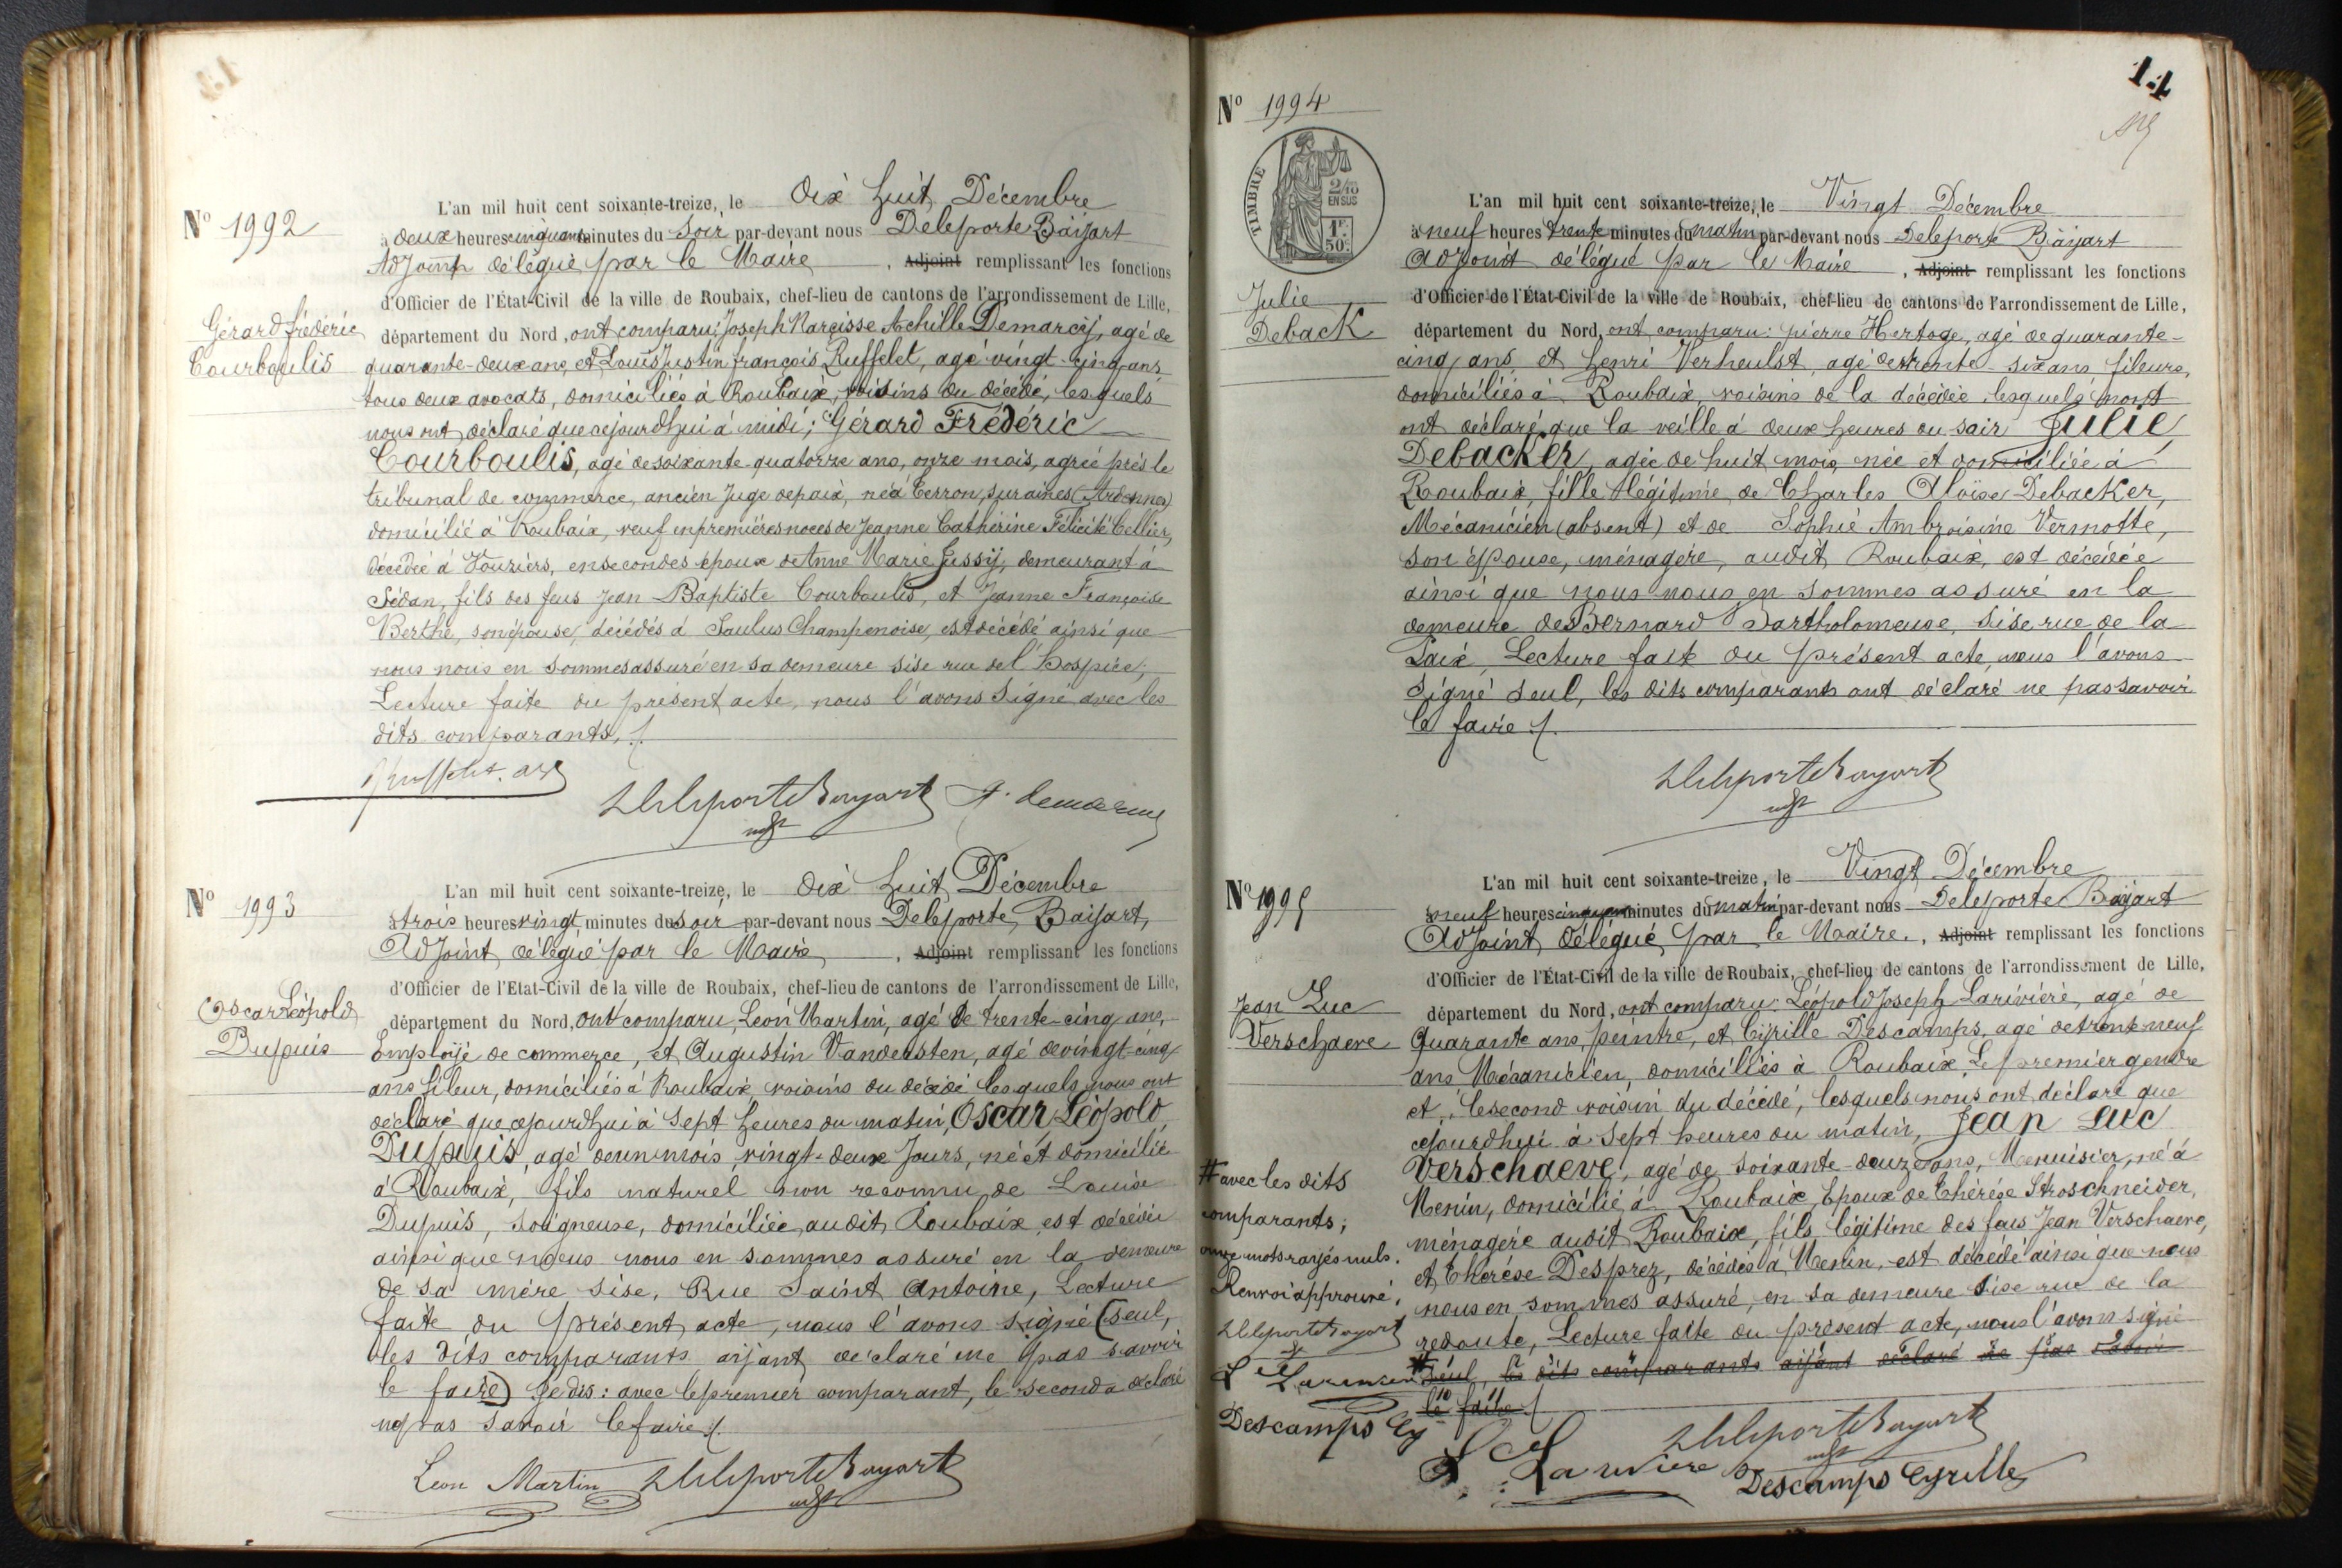 Nº 1992
Gérard frédéric
Courboulis
L'an mil huit cent soixante-treize, le Dix huit Décembre
à deux heures cinquante minutes du Soir par-devant nous Deleporte Baijart
Adjoint délégué par le Maire , Adjoint remplissant les fonctions
d'Officier de l'État-Civil de la ville de Roubaix, chef-lieu de cantons de l'arrondissement de Lille,
département du Nord, ont comparu: Joseph Narcisse Achille Demarcij, agé de
quarante-deux ans, et Louis Justin françois Ruffelet, agé vingt-cinq ans,
tous deux avocats, domiciliés à Roubaix, voisins du décédé, lesquels
nous ont déclaré que cejourdhui à midi; Gérard Frédéric
Courboulis, agé de soixante-quatorze ans, onze mois, agréé près le
tribunal de commerce, ancien Juge de paix, né à Terron, sur aines (Ardennes)
domicilié à Roubaix, veuf en premières noces de Jeanne Catherine Félicité Cellier,
décédée à Vouziers, en secondes époux de Anne Marie Jussy, demeurant à
Sédan, fils des feus Jean Baptiste Courboulis, et Jeanne Françoise
Berthe, son épouse, décédés à Saulus Champenoise, est décédé ainsi que
nous nous en sommes assuré en sa demeure sise rue de l'hospice;
Lecture faite du présent acte, nous l'avons signé avec les
dits comparants, ./.
DeleporteBayart
Nº 1993
Oscar Léopold
Dupuis
L'an mil huit cent soixante-treize, le Dix huit Décembre
à trois heures vingt minutes du soir par-devant nous Deleporte Baijart,
Adjoint délégué par le Maire , Adjoint remplissant les fonctions
d'Officier de l'Etat-Civil de la ville de Roubaix, chef-lieu de cantons de l'arrondissement de Lille,
département du Nord, ont comparu, Léon Martin, agé de trente-cinq ans,
Employé de commerce, et Augustin Vandersten, agé de vingt-cinq
ans fileur, domiciliés à Roubaix, voisins du décédé lesquels nous ont
déclaré que cejourdhui à sept heures du matin, Oscar Léopold
Dupuis, agé de un mois, vingt-deux Jours, né et domicilié
à Roubaix, fils naturel non reconnu de Louise
Dupuis, Soigneuse, domiciliée audit Roubaix est décédé
ainsi que nous nous en sommes assuré en la demeure
de sa mère sise, Rue Saint Antoine, Lecture
faite du présent acte, nous l'avons signé (seul,
les dits comparants aijant déclaré ne pas savoir
le faire) Je dis: avec le premier comparant, le second a déclaré
ne pas savoir le faire ./.
Leon Martin DeleporteBayart
14
Nº 1994
TIMBRE
2/10
EN SUS
1F.
50c.
Julie
Deback
L'an mil huit cent soixante-treize, le Vingt Décembre
à neuf heures trente minutes du matin par-devant nous Deleporte Baijart
Adjoint délégué par le Maire , Adjoint remplissant les fonctions
d'Officier de l'État-Civil de la ville de Roubaix, chef-lieu de cantons de l'arrondissement de Lille,
département du Nord, ont comparu: pierre Hertoge, agé de quarante-
cinq ans, et henri Verheulst, agé de trente-six ans fileurs,
domiciliés à Roubaix, voisins de la décédée, lesquels nous
ont déclaré que la veille à deux heures du soir Julie
Debacker, agée de huit mois, née et domiciliée à
Roubaix, fille légitime de Charles Aloïse Debacker,
Mécanicien (absent) et de Sophie Ambroisine Vermotte,
son épouse, ménagère, audit Roubaix, est décédée
ainsi que nous nous en sommes assuré en la
demeure de Bernard Bartholomeuse, sise rue de la
Paix, Lecture faite du présent acte, nous l'avons
signé seul, les dits comparants ont déclaré ne pas savoir
le faire ./.
DeleporteBayart
Nº 1995
Jean Luc
Verschaeve
L'an mil huit cent soixante-treize, le Vingt Décembre
à neuf heures cinquante minutes du matin par-devant nous Deleporte Baijart
Adjoint délégué par le Maire. , Adjoint remplissant les fonctions
d'Officier de l'État-Civil de la ville de Roubaix, chef-lieu de cantons de l'arrondissement de Lille,
département du Nord, ont comparu: Léopold Joseph Larivière, agé de
Quarante ans, peintre, et Cijrille Descamps, agé de trente neuf
ans Mécanicien, domiciliés à Roubaix, Le premier gendre
et, le second voisin du décédé, lesquels nous ont déclaré que
cejourdhui à sept heures du matin, Jean Luc
Verschaeve, agé de soixante-douze ans, Menuisier, né à
Menin, domicilié à Roubaix, Epoux de Thérèse Stroschneider,
ménagère audit Roubaix, fils légitime des feus Jean Verschaeve,
et Thérèse Desprez, décédés à Menin, est décédé ainsi que nous
nous en sommes assuré, en sa demeure sise rue de la
redoute, Lecture faite du présent acte, nous l'avons signé
# seul, les dits comparants aijant déclaré ne pas savoir
le faire ./.
# avec les dits
comparants;
onze mots rayés nuls.
Renvoi approuvé,
DeleporteBayart
Descamps Cy
L Lariviere DeleporteBayart
Descamps Cyrille